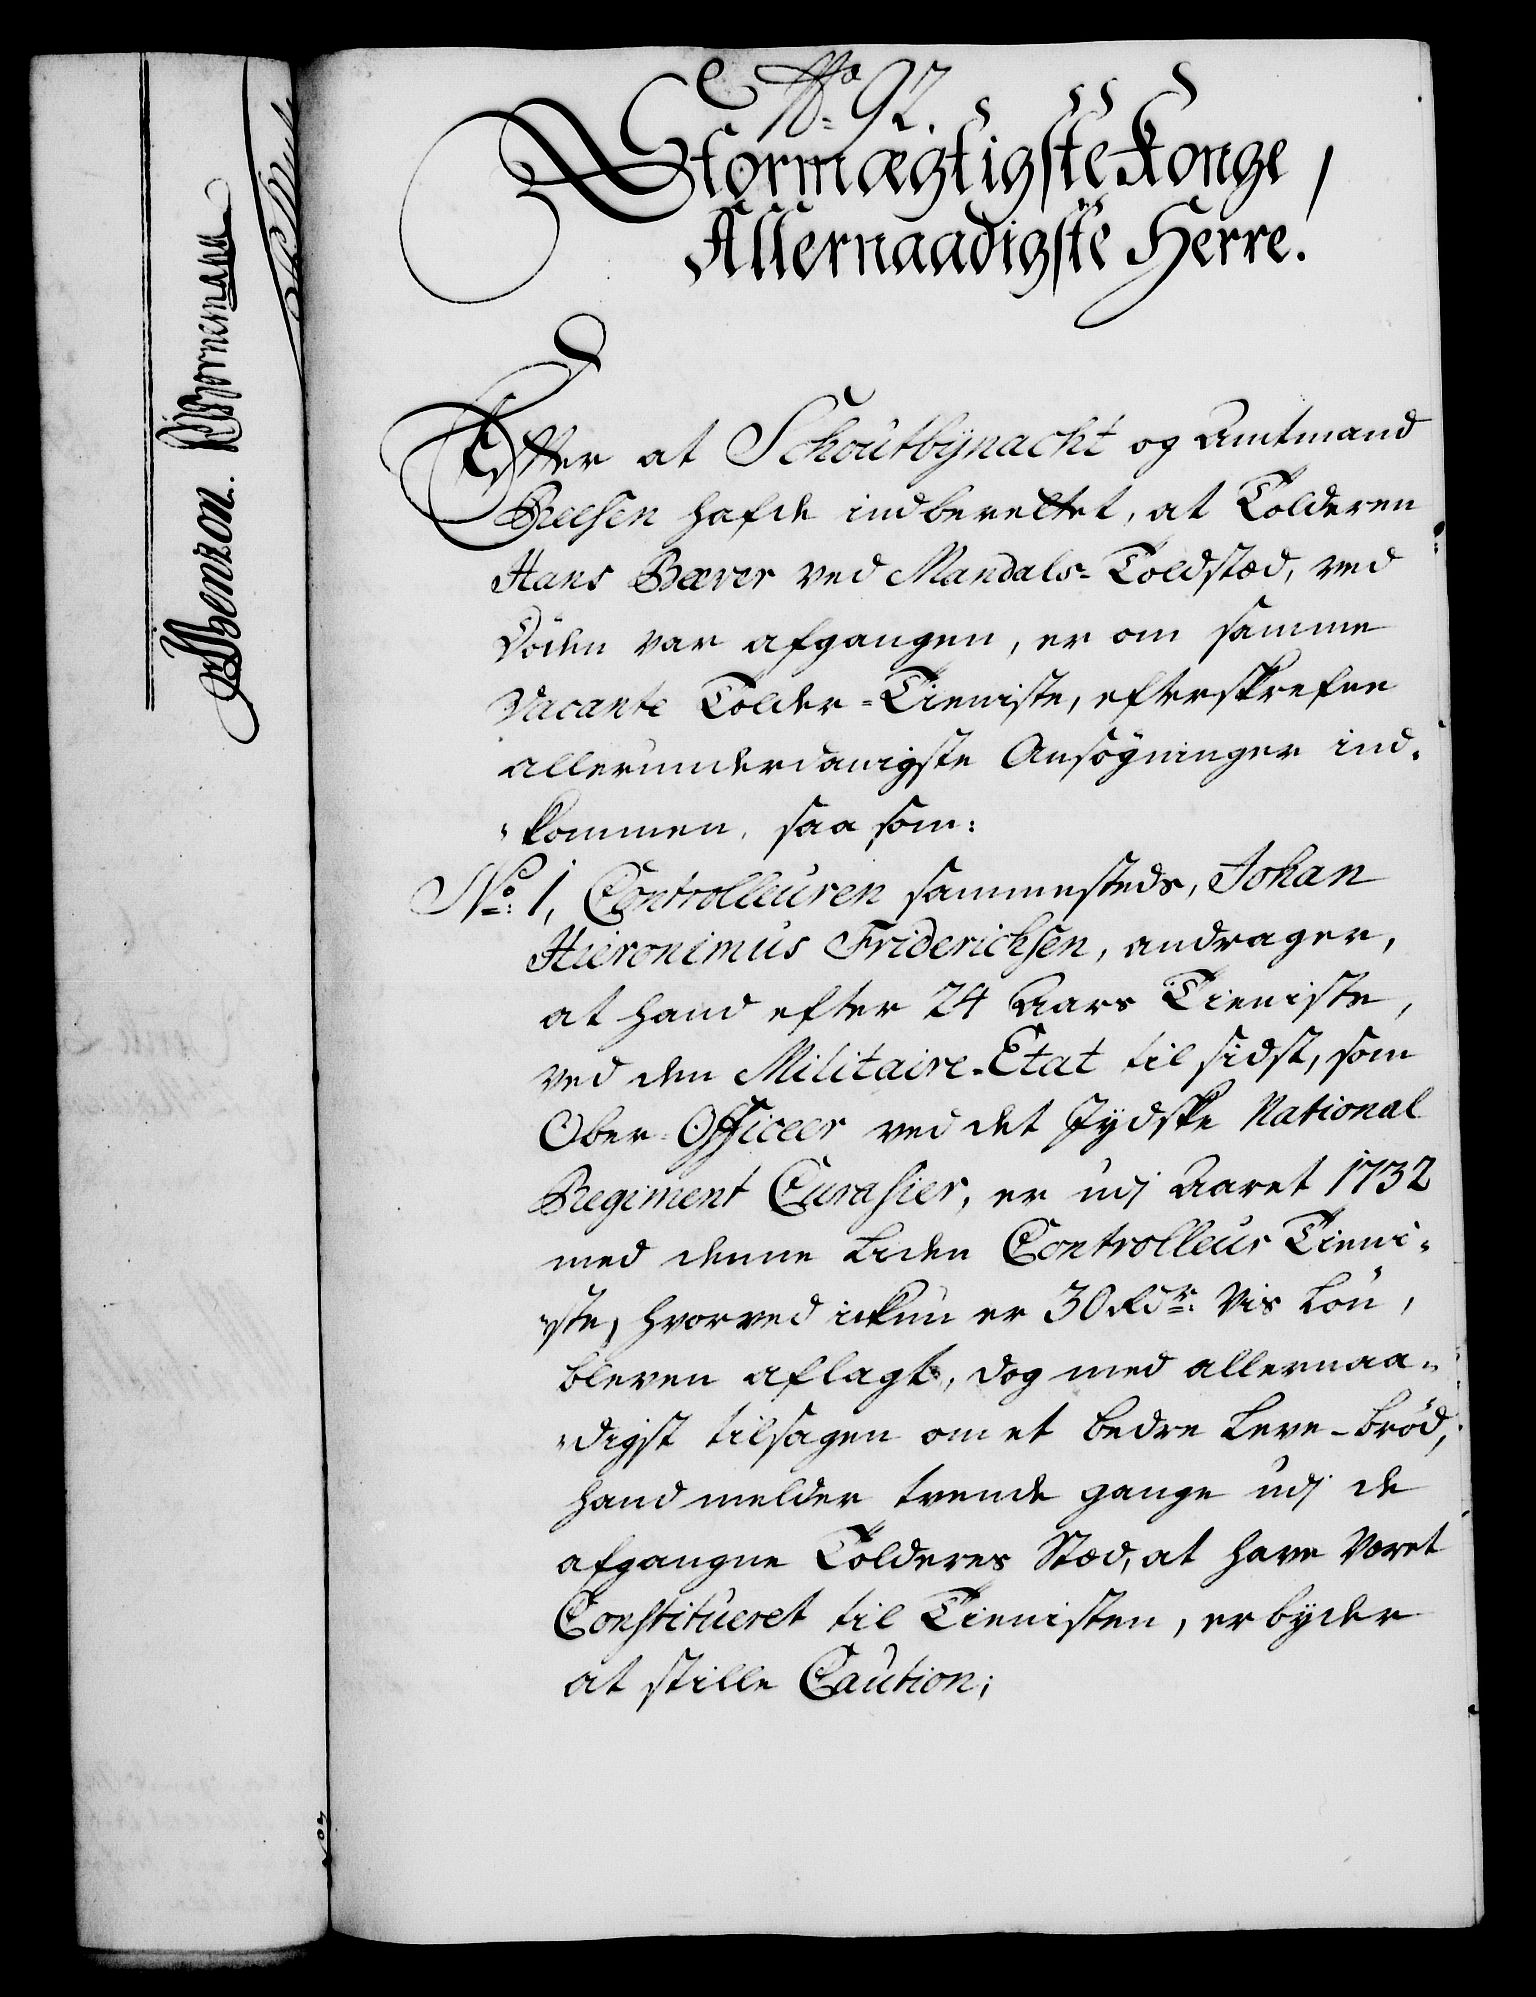 No: 92.
Stormægtigste Konge,
Allernaadigste Herre.
Efter at Schoutbynacht og Amtmand
Reesen hafde indberettet, at Tolderen
Hans Bærer ved Mandals-Toldstæd, ved
Döden var afgangen, er om samme
Vacante Tolder-Tieniste, efterskrefne
allerunderdanigste Ansögninger ind-
kommen, saasom:
No: 1, Controlleuren sammesteds, Johan
Hieronimus Friderichsen, andrager,
at hand efter 24 Aars Tieniste,
ved den Militaire-Etat til sidst, som
Ober-Officeer ved det Jydske National
Regiment Curasier, er udj Aaret 1732
med denne liden Controlleur Tieni-
ste, hvorved ickun er 30 Rdr: vis Lön,
bleven aflagt, dog med allernaa-
digst tilsagen om et bedre Leve-bröd,
hand melder trende gange udj de
afgangne Tolderes Stæd, at have været
Constitueret til Tienisten, erbyder
at stille Caution;
Benzon. Bornemann